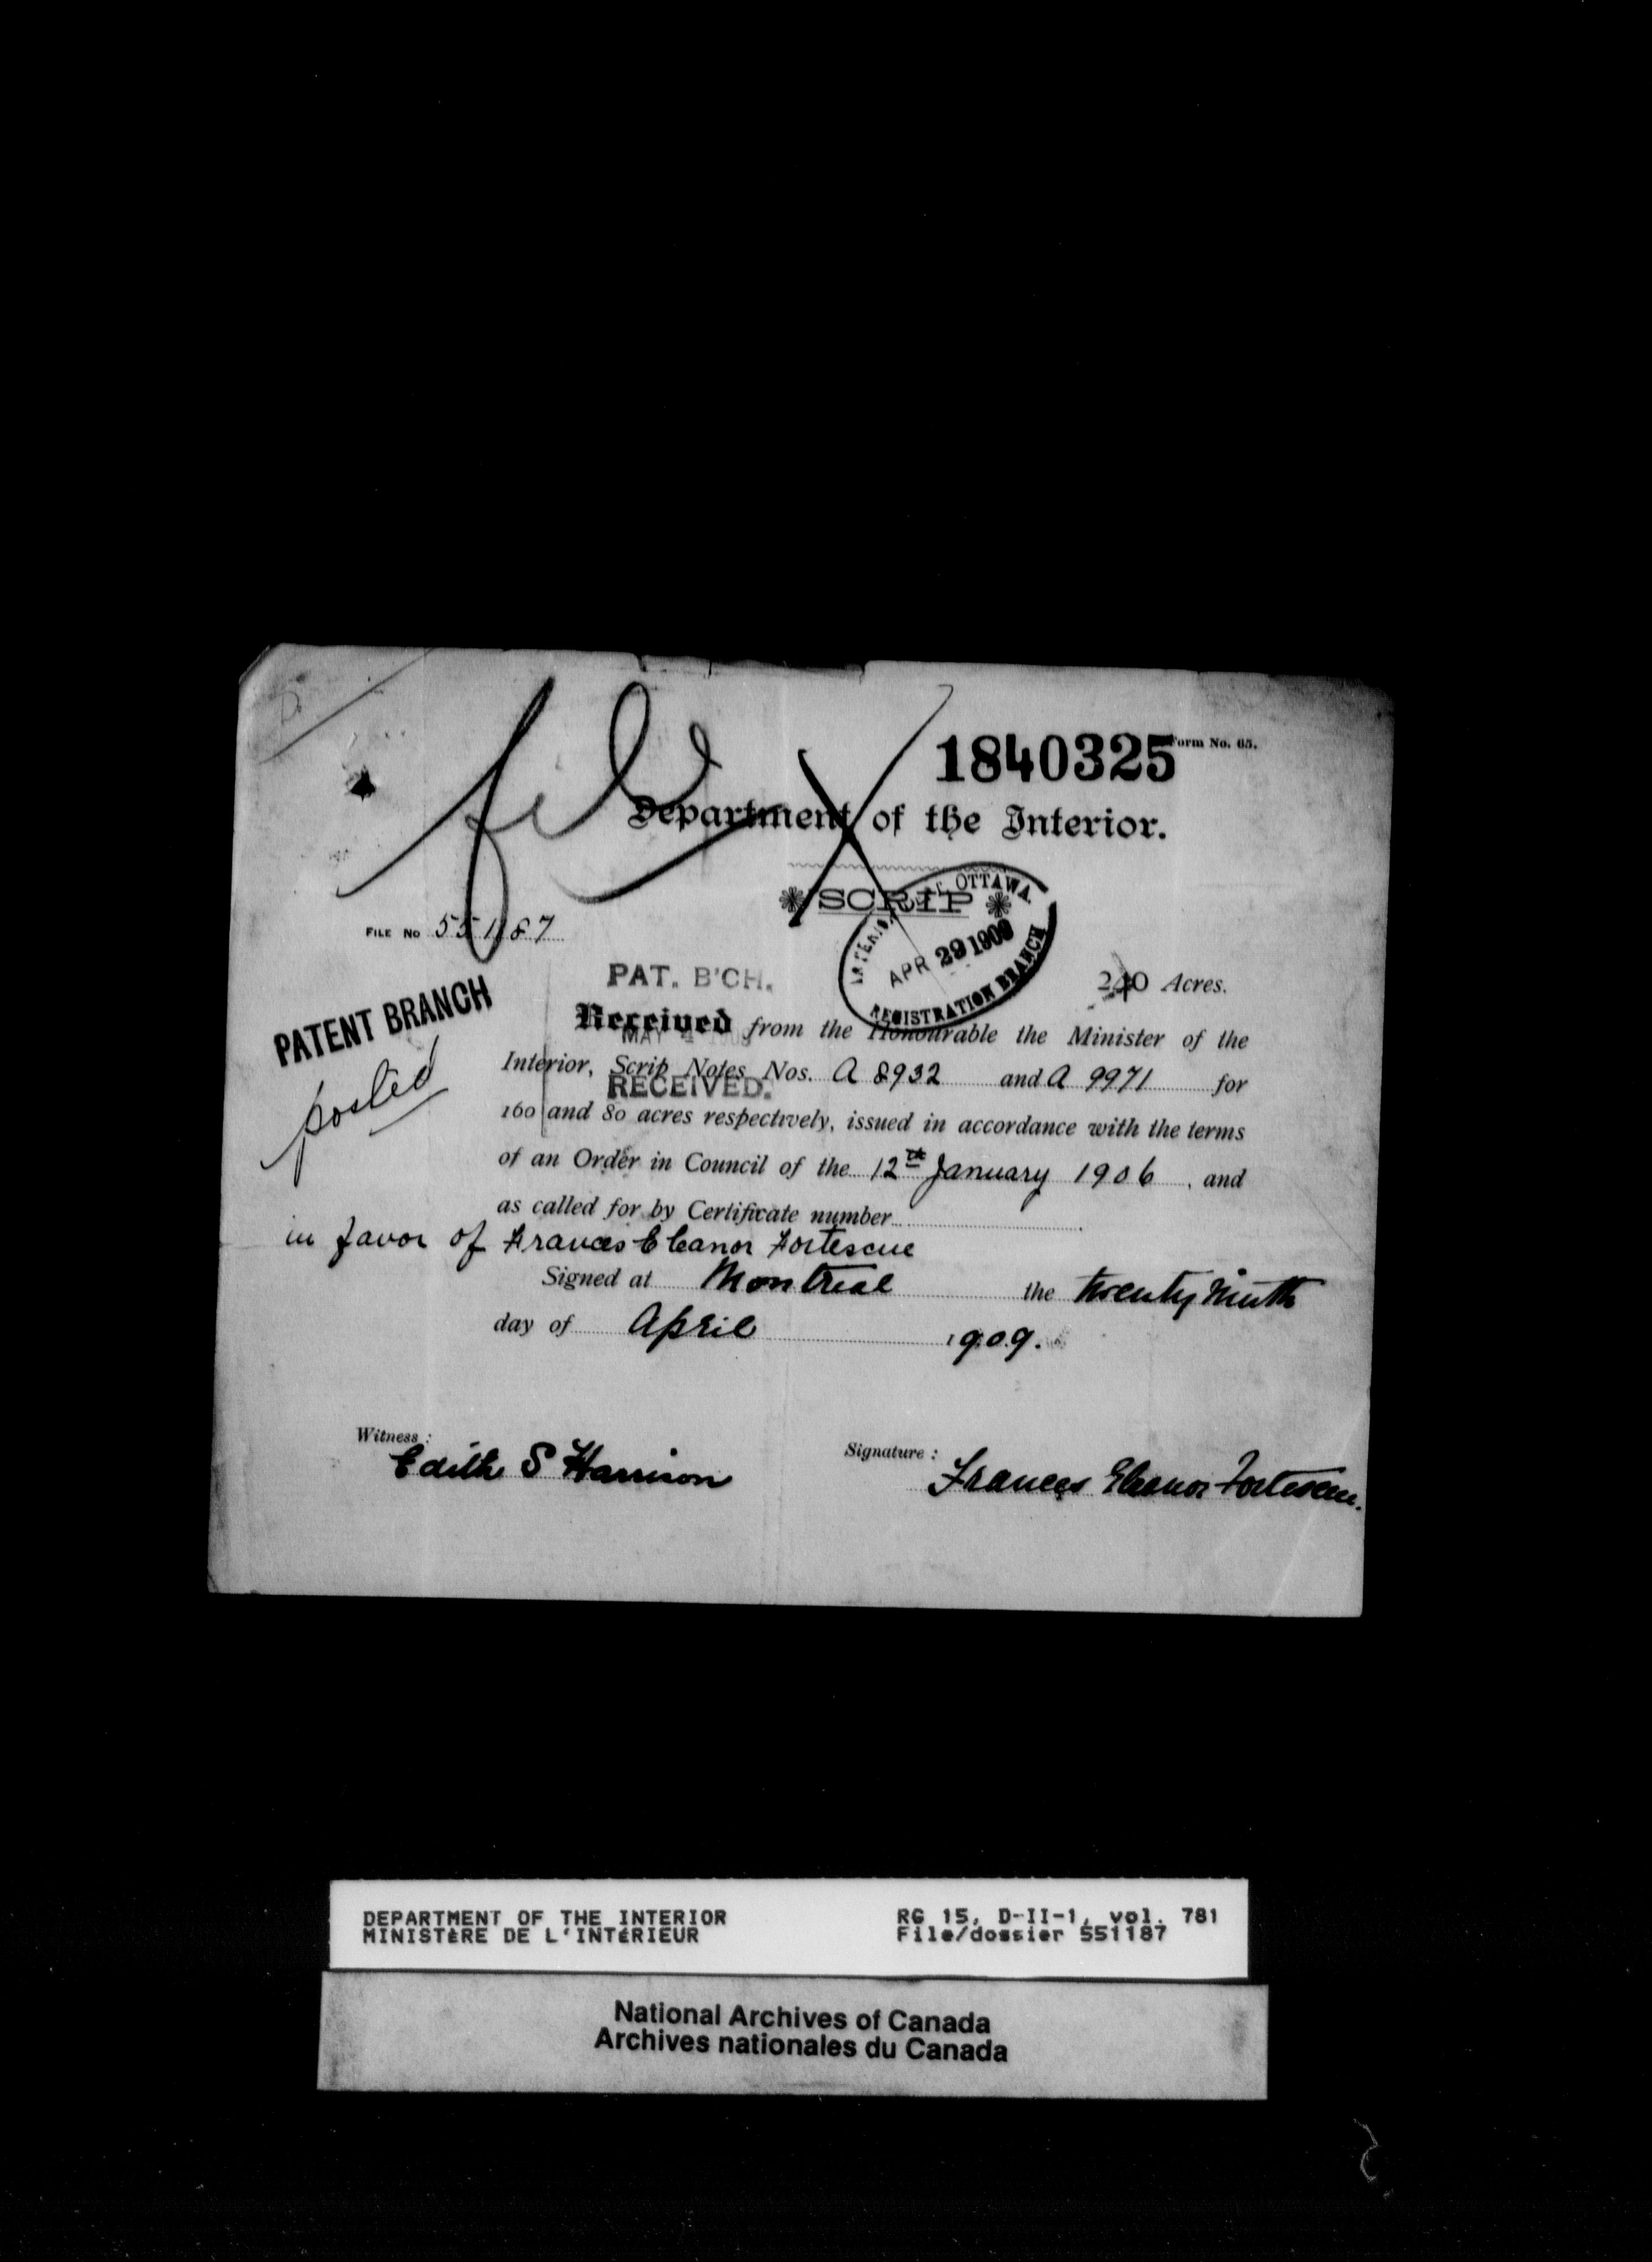 file
1840325
Form No. 65.
Department of the Interior.
SCRIP
INTERIOR OTTAWA.
APR 29 1909
REGISTRATION BRANCH
FILE No 551187
PAT. B'CH.
240 Acres.
PATENT BRANCH
posted
Received from the Honourable the Minister of the
MAY
Interior, Scrip Notes Nos. A 8932 and A 9971 for
RECEIVED.
160 and 80 acres respectively, issued in accordance with the terms
of an Order in Council of the 12th January 1906, and
as called for by Certificate number
in favor of Frances Eleanor Fortescue
Signed at Montreal the twenty ninth
day of April 1909.
Witness:
Edith S Harrison
Signature:
Frances Eleanor Fortescue.
DEPARTMENT OF THE INTERIOR
MINISTÈRE DE L'INTÉRIEUR
RG 15, D-II-1, vol. 781
File/dossier 551187
National Archives of Canada
Archives nationales du Canada